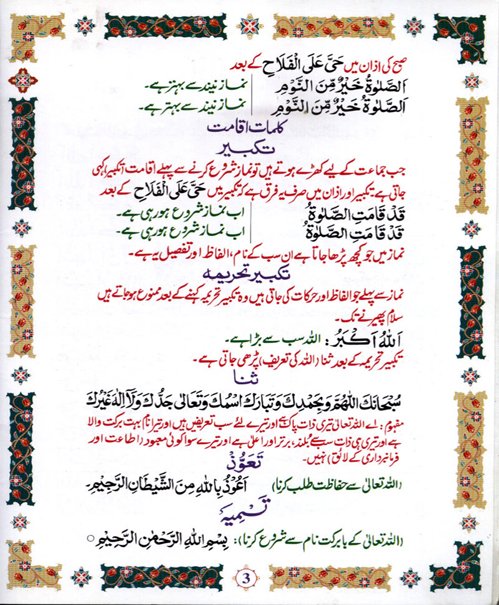 صبح کی اذان میں حَیَّ عَلَی الْفَلَاحِ کے بعد
اَلصَّلٰوةُ خَیْرٌ مِّنَ النَّوْمِ نماز نیند سے بہتر ہے۔
اَلصَّلٰوةُ خَیْرٌ مِّنَ النَّوْمِ نماز نیند سے بہتر ہے۔
کلمات اقامت
تکبیر
جب جماعت کے لیے کھڑے ہوتے ہیں تو نماز شروع کرنے سے پہلے اقامت (تکبیر) کہی
جاتی ہے۔ تکبیر اور اذان میں صرف یہ فرق ہے کہ تکبیر میں حَیَّ عَلَی الْفَلَاحِ کے بعد
قَدْ قَامَتِ الصَّلٰوةُ اب نماز شروع ہو رہی ہے۔
قَدْ قَامَتِ الصَّلٰوةُ اب نماز شروع ہو رہی ہے۔
نماز میں جو کچھ پڑھا جاتا ہے ان سب کے نام، الفاظ اور تفصیل یہ ہے۔
تکبیر تحریمہ
نماز سے پہلے جو الفاظ اور حرکات کی جاتی ہیں وہ تکبیر تحریمہ کہنے کے بعد ممنوع ہو جاتے ہیں
سلام پھیرنے تک۔
اَللّٰهُ اَکْبَرُ: اللہ سب سے بڑا ہے۔
تکبیر تحریمہ کے بعد ثنا (اللہ کی تعریف) پڑھی جاتی ہے۔
ثنا
سُبْحَانَكَ اللّٰهُمَّ وَبِحَمْدِكَ وَتَبَارَكَ اسْمُكَ وَتَعَالٰی جَدُّكَ وَلَآ اِلٰهَ غَیْرُكَ
مفہوم: اے اللہ تیری ذات پاک ہے اور تیرے لئے سب تعریفیں ہیں اور تیرا نام بہت برکت والا
ہے اور تیری ہی ذات سب سے بلند، برتر اور اعلیٰ ہے اور تیرے سوا کوئی معبود (اطاعت اور
فرمانبرداری کے لائق) نہیں۔
تَعَوُّذ
(اللہ تعالیٰ سے حفاظت طلب کرنا) اَعُوْذُ بِاللّٰهِ مِنَ الشَّیْطَانِ الرَّجِیْمِ۔
تَسْمِیَہ
(اللہ تعالیٰ کے بابرکت نام سے شروع کرنا): بِسْمِ اللّٰهِ الرَّحْمٰنِ الرَّحِیْمِ ○
3